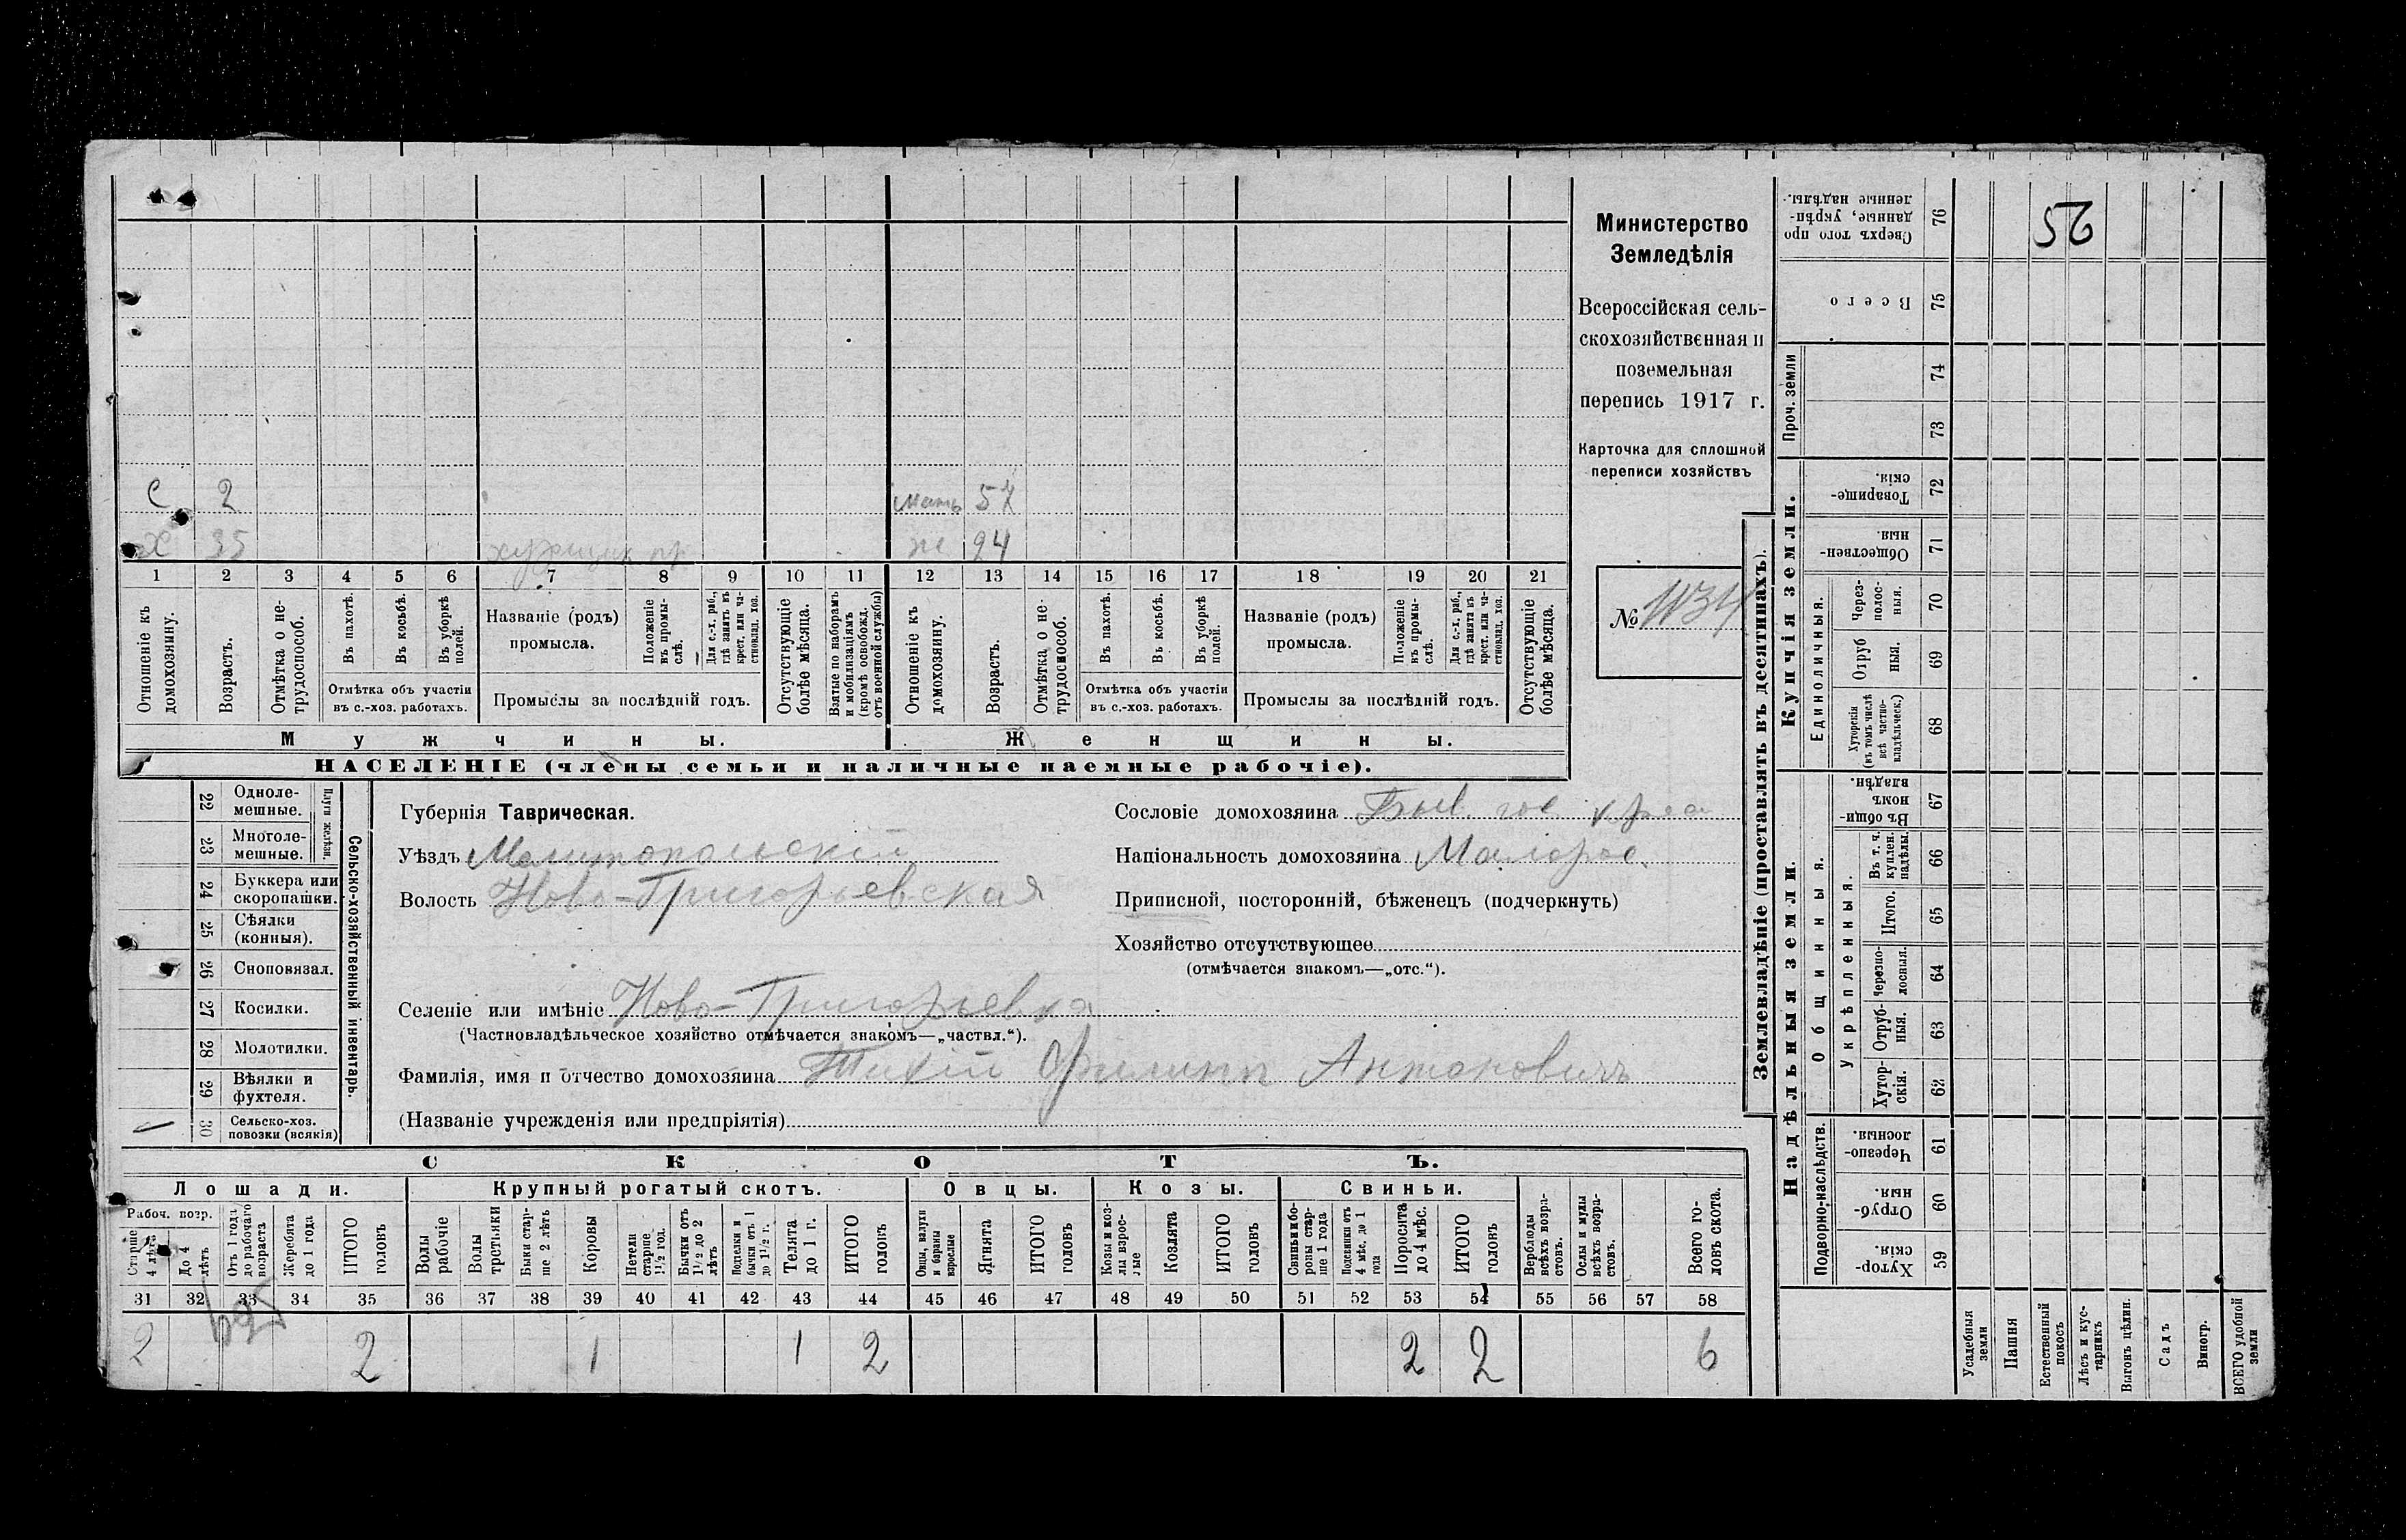 С 2 мать 57
Х 35 ж 24
1 2 3 4 5 6 7 8 9 10 11 12 13 14 15 16 17 18 19 20 21
Отношеніе къ домохозяину.
Возрастъ.
Отмѣтка о не-трудоспособ.
Въ пахотѣ.
Въ косьбѣ.
Въ уборкѣ полей.
Отмѣтка объ участіи
въ с.-хоз. работахъ.
Названіе (родъ)
промысла.
Положеніе въ промы-слѣ.
Для с.-х. раб., гдѣ занятъ въ крест. или ча-стновлад. хоз.
Промыслы за послѣдній годъ.
Отсутствующіе болѣе мѣсяца.
Взятые по наборамъ и мобилизаціямъ (кромѣ освобожд. отъ военной службы)
Отношеніе къ домохозяину.
Возрастъ.
Отмѣтка о не-трудоспособ.
Въ пахотѣ.
Въ косьбѣ.
Въ уборкѣ полей.
Отмѣтка объ участіи
въ с.-хоз. работахъ.
Названіе (родъ)
промысла.
Положеніе въ промы-слѣ.
Для с.-х. раб., гдѣ занята въ крест. или ча-стновлад. хоз.
Промыслы за послѣдній годъ.
Отсутствующіе болѣе мѣсяца.
Мужчины. Женщины.
НАСЕЛЕНІЕ (члены семьи и наличные наемные рабочіе).
Министерство
Земледѣлія
Всероссійская сель-
скохозяйственная и
поземельная
перепись 1917 г.
Карточка для сплошной
переписи хозяйствъ
№ 1134
22 Одноле-мешные.
23 Многоле-мешные.
Плуги желѣзн.
24 Буккера или скоропашки.
25 Сѣялки (конныя).
26 Сноповязал.
27 Косилки.
28 Молотилки.
29 Вѣялки и фухтеля.
30 Сельско-хоз. повозки (всякія)
Сельско-хозяйственный инвентарь.
Губернія Таврическая.
Уѣздъ Мелитопольскій
Волость Ново-Григорьевская
Селеніе или имѣніе Ново-Григорьевка
(Частновладѣльческое хозяйство отмѣчается знакомъ—„частвл.“).
Фамилія, имя и отчество домохозяина Тихій Филипп Антоновичъ
(Названіе учрежденія или предпріятія)
Сословіе домохозяина Быв. гос.
Національность домохозяина Малорос.
Приписной, посторонній, бѣженецъ (подчеркнуть)
Хозяйство отсутствующее
(отмѣчается знакомъ—„отс.“).
СКОТЪ.
Лошади. Крупный рогатый скотъ. Овцы. Козы. Свиньи.
Рабоч. возр.
Старше 4 лѣтъ
До 4 лѣтъ
Отъ 1 года до рабочаго возраста
Жеребята до 1 года
ИТОГО головъ
Волы рабочіе
Волы третьяки
Быки стар-ше 2 лѣтъ
Коровы
Нетели старше 1½ год.
Бычки отъ 1½ до 2 лѣтъ
Подтелки и бычки отъ 1 до 1½ г.
Телята до 1 г.
ИТОГО головъ
Овцы, валухи и бараны взрослые
Ягнята
ИТОГО головъ
Козы и коз-лы взрос-лые
Козлята
ИТОГО головъ
Свиньи и бо-ровы стар-ше 1 года
Подсвинки отъ 4 мѣс. до 1 года
Поросята до 4 мѣс.
ИТОГО головъ
Верблюды всѣхъ возра-стовъ.
Ослы и мулы всѣхъ возра-стовъ.
Всего го-ловъ скота.
31 32 33 34 35 36 37 38 39 40 41 42 43 44 45 46 47 48 49 50 51 52 53 54 55 56 57 58
2 2 1 1 2 2 2 6
Землевладѣніе (проставлять въ десятинахъ).
Купчія земли.
Надѣльныя земли.
76 Сверхъ того про-данные, укрѣп-ленные надѣлы.
52
75 Всего
Проч. земли
74
73
72 Товарище-скія.
71 Обществен-ныя.
Единоличныя.
70 Через-полос-ныя.
69 Отруб-ныя.
68 Хуторскія (въ томъ числѣ всѣ частно-владѣльческ.)
67 Въ общин-номъ владѣн.
Общинныя.
Укрѣпленныя.
66 Въ т. ч. куплен. надѣлы.
65 Итого.
64 Черезпо-лосныя.
63 Отруб-ныя.
62 Хутор-скія.
Подворно-наслѣдств.
61 Черезпо-лосныя.
60 Отруб-ныя.
59 Хутор-скія.
Усадебныя земли
Пашня
Естественный покосъ
Лѣсъ и кус-тарникъ
Выгонъ цѣлин.
Садъ
Виногр.
ВСЕГО удобной земли